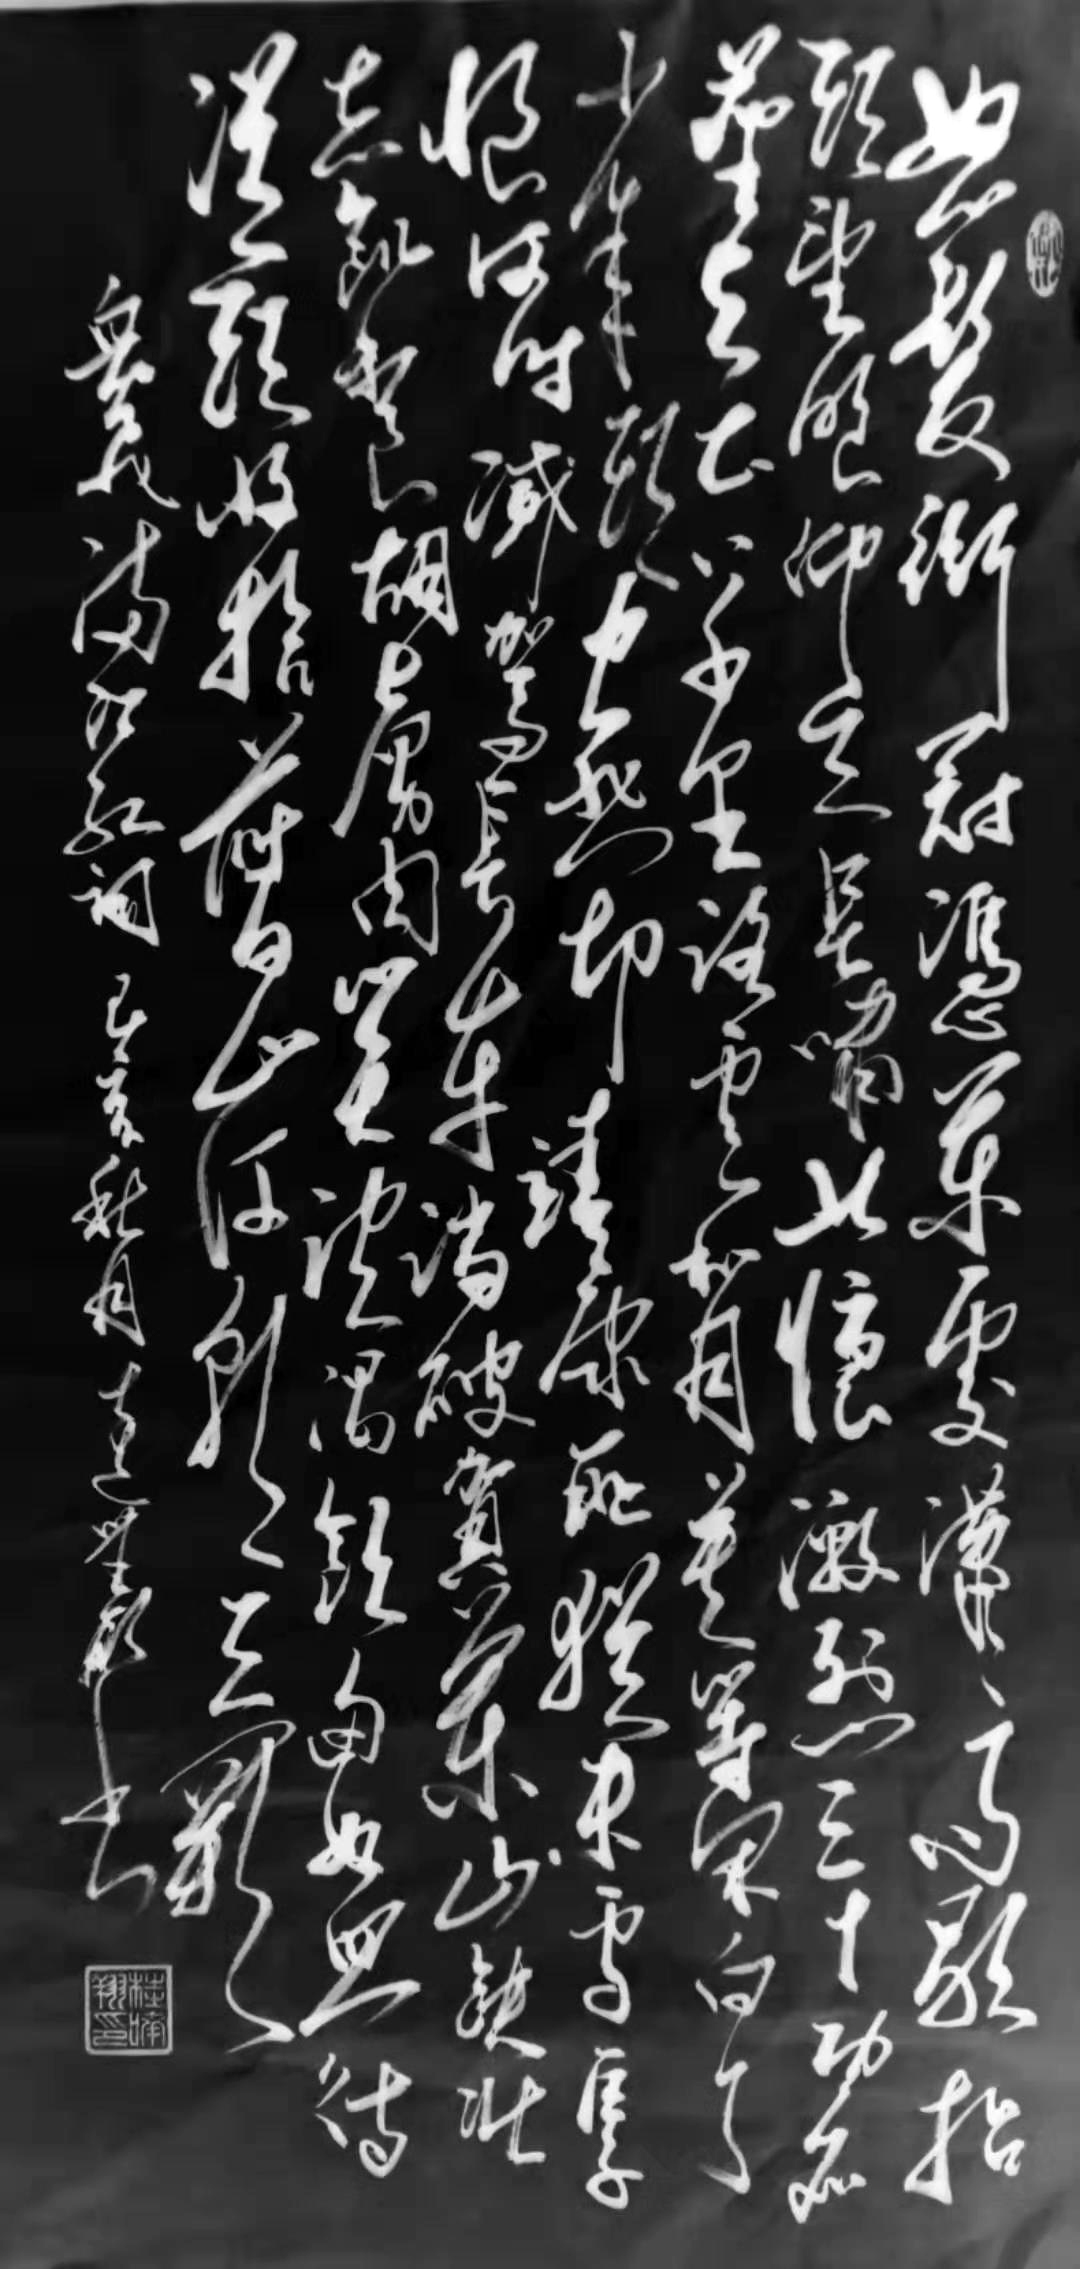 怒髮衝冠憑闌處瀟瀟雨歇抬
頭望眼仰天長嘯壯懷激烈三十功名
塵與土八千里路雲和月莫等閑白了
少年頭空悲切靖康恥猶未雪臣子
恨何時滅駕長車踏破賀蘭山缺壯
志飢餐胡虜肉笑談渴飲匈奴血待
從頭收拾舊山河朝天闕
岳飛滿江紅詞 己亥秋月 書